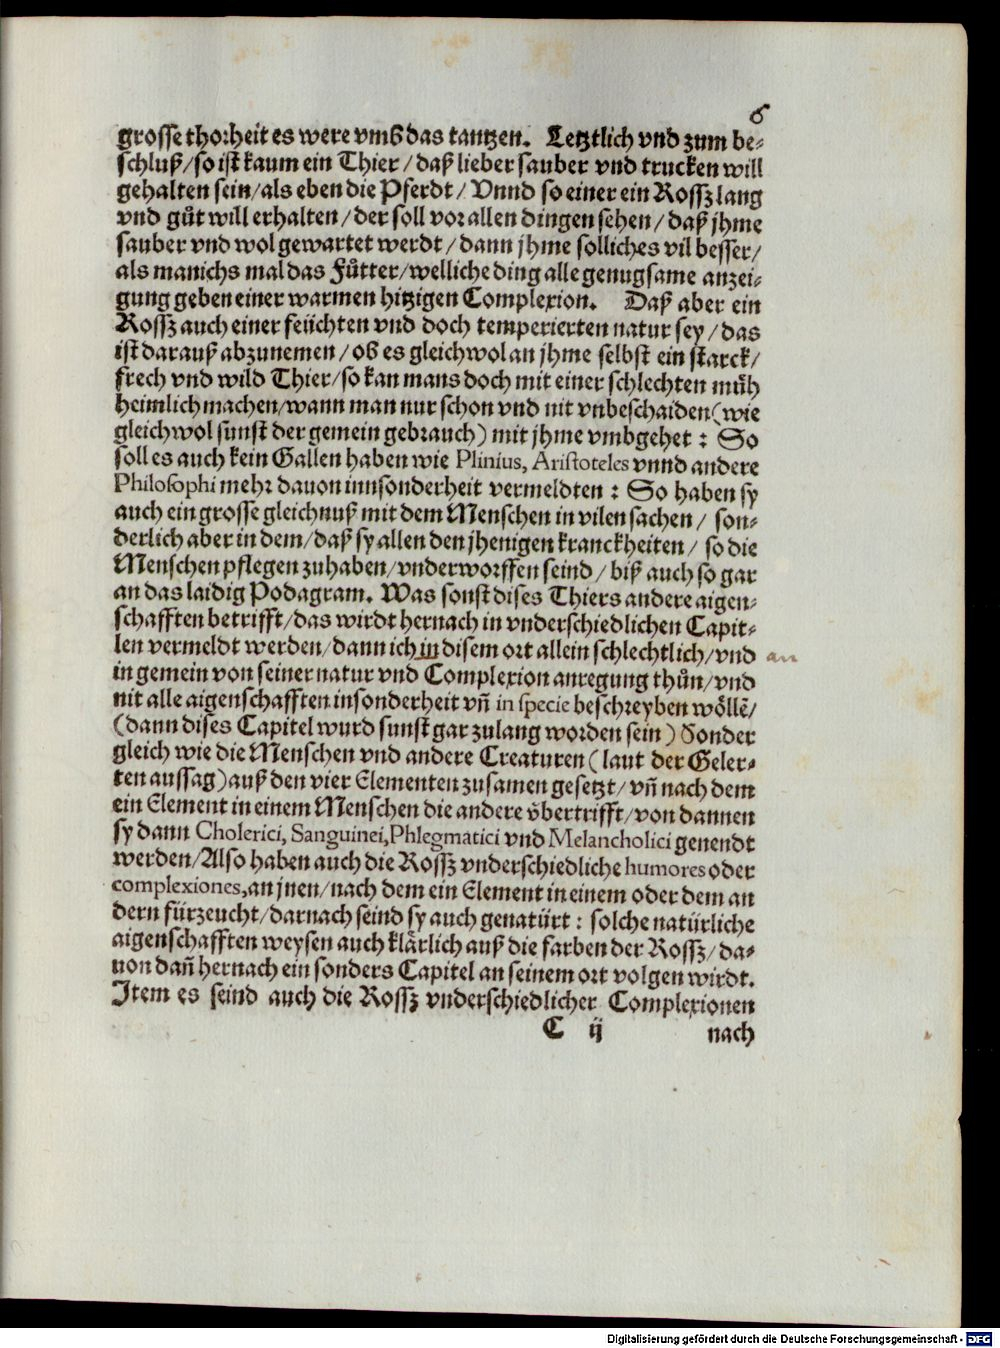 6
grosse thorheit es were vmb das tantzen. Letztlich vnd zum be-
schluß/so ist kaum ein Thier/daß lieber sauber vnd trucken will
gehalten sein/als eben die Pferdt/Vnnd so einer ein Rossz lang
vnd gůt will erhalten/der soll vor allen dingen sehen/daß jhme
sauber vnd wol gewartet werdt/dann jhme solliches vil besser/
als manichs mal das Fůtter/welliche ding alle genugsame anzei-
gung geben einer warmen hitzigen Complexion. Daß aber ein
Rossz auch einer feüchten vnd doch temperierten natur sey/das
ist darauß abzunemen/ob es gleichwol an jhme selbst ein starck/
frech vnd wild Thier/so kan mans doch mit einer schlechten můh
heimlich machen/wann man nur schon vnd nit vnbeschaiden (wie
gleichwol sunst der gemein gebrauch) mit jhme vmbgehet: So
soll es auch kein Gallen haben wie Plinius, Aristoteles vnnd andere
Philosophi mehr dauon innsonderheit vermeldten: So haben sy
auch ein grosse gleichnuß mit dem Menschen in vilen sachen/son-
derlich aber in dem/daß sy allen den jhenigen kranckheiten/so die
Menschen pflegen zuhaben/vnderworffen seind/biß auch so gar
an das laidig Podagram. Was sonst dises Thiers andere aigen-
schafften betrifft/das wirdt hernach in vnderschiedlichen Capit-
len vermeldt werden/dann ich in disem ort allein schlechtlich/vnd an
in gemein von seiner natur vnd Complexion anregung thůn/vnd
nit alle aigenschafften insonderheit vñ in specie beschreyben wöllē/
(dann dises Capitel wurd sunst gar zulang worden sein) Sonder
gleich wie die Menschen vnd andere Creaturen (laut der Geler-
ten aussag) auß den vier Elementen zusamen gesetzt/vñ nach dem
ein Element in einem Menschen die andere vbertrifft/von dannen
sy dann Cholerici, Sanguinei, Phlegmatici vnd Melancholici genendt
werden/Also haben auch die Rossz vnderschiedliche humores oder
complexiones, an jnen/nach dem ein Element in einem oder dem an
dern fürzeucht/darnach seind sy auch genatürt: solche natürliche
aigenschafften weysen auch klärlich auß die farben der Rossz/da-
uon dañ hernach ein sonders Capitel an seinem ort volgen wirdt.
Item es seind auch die Rossz vnderschiedlicher Complexionen
C ij nach
Digitalisierung gefördert durch die Deutsche Forschungsgemeinschaft - DFG